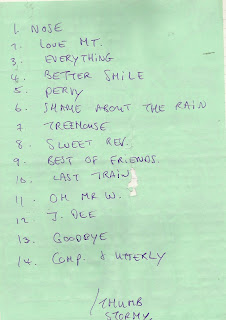 1. NOSE
2. LOVE MT.
3. EVERYTHING
4. BETTER SMILE
5. PERVY
6. SHAME ABOUT THE RAIN
7. TREEHOUSE
8. SWEET REV.
9. BEST OF FRIENDS.
10. LAST TRAIN
11. OH MR W.
12 J. DEE
13. GOODBYE
14. COMP. & UTTERLY
/THUMB
STORMY